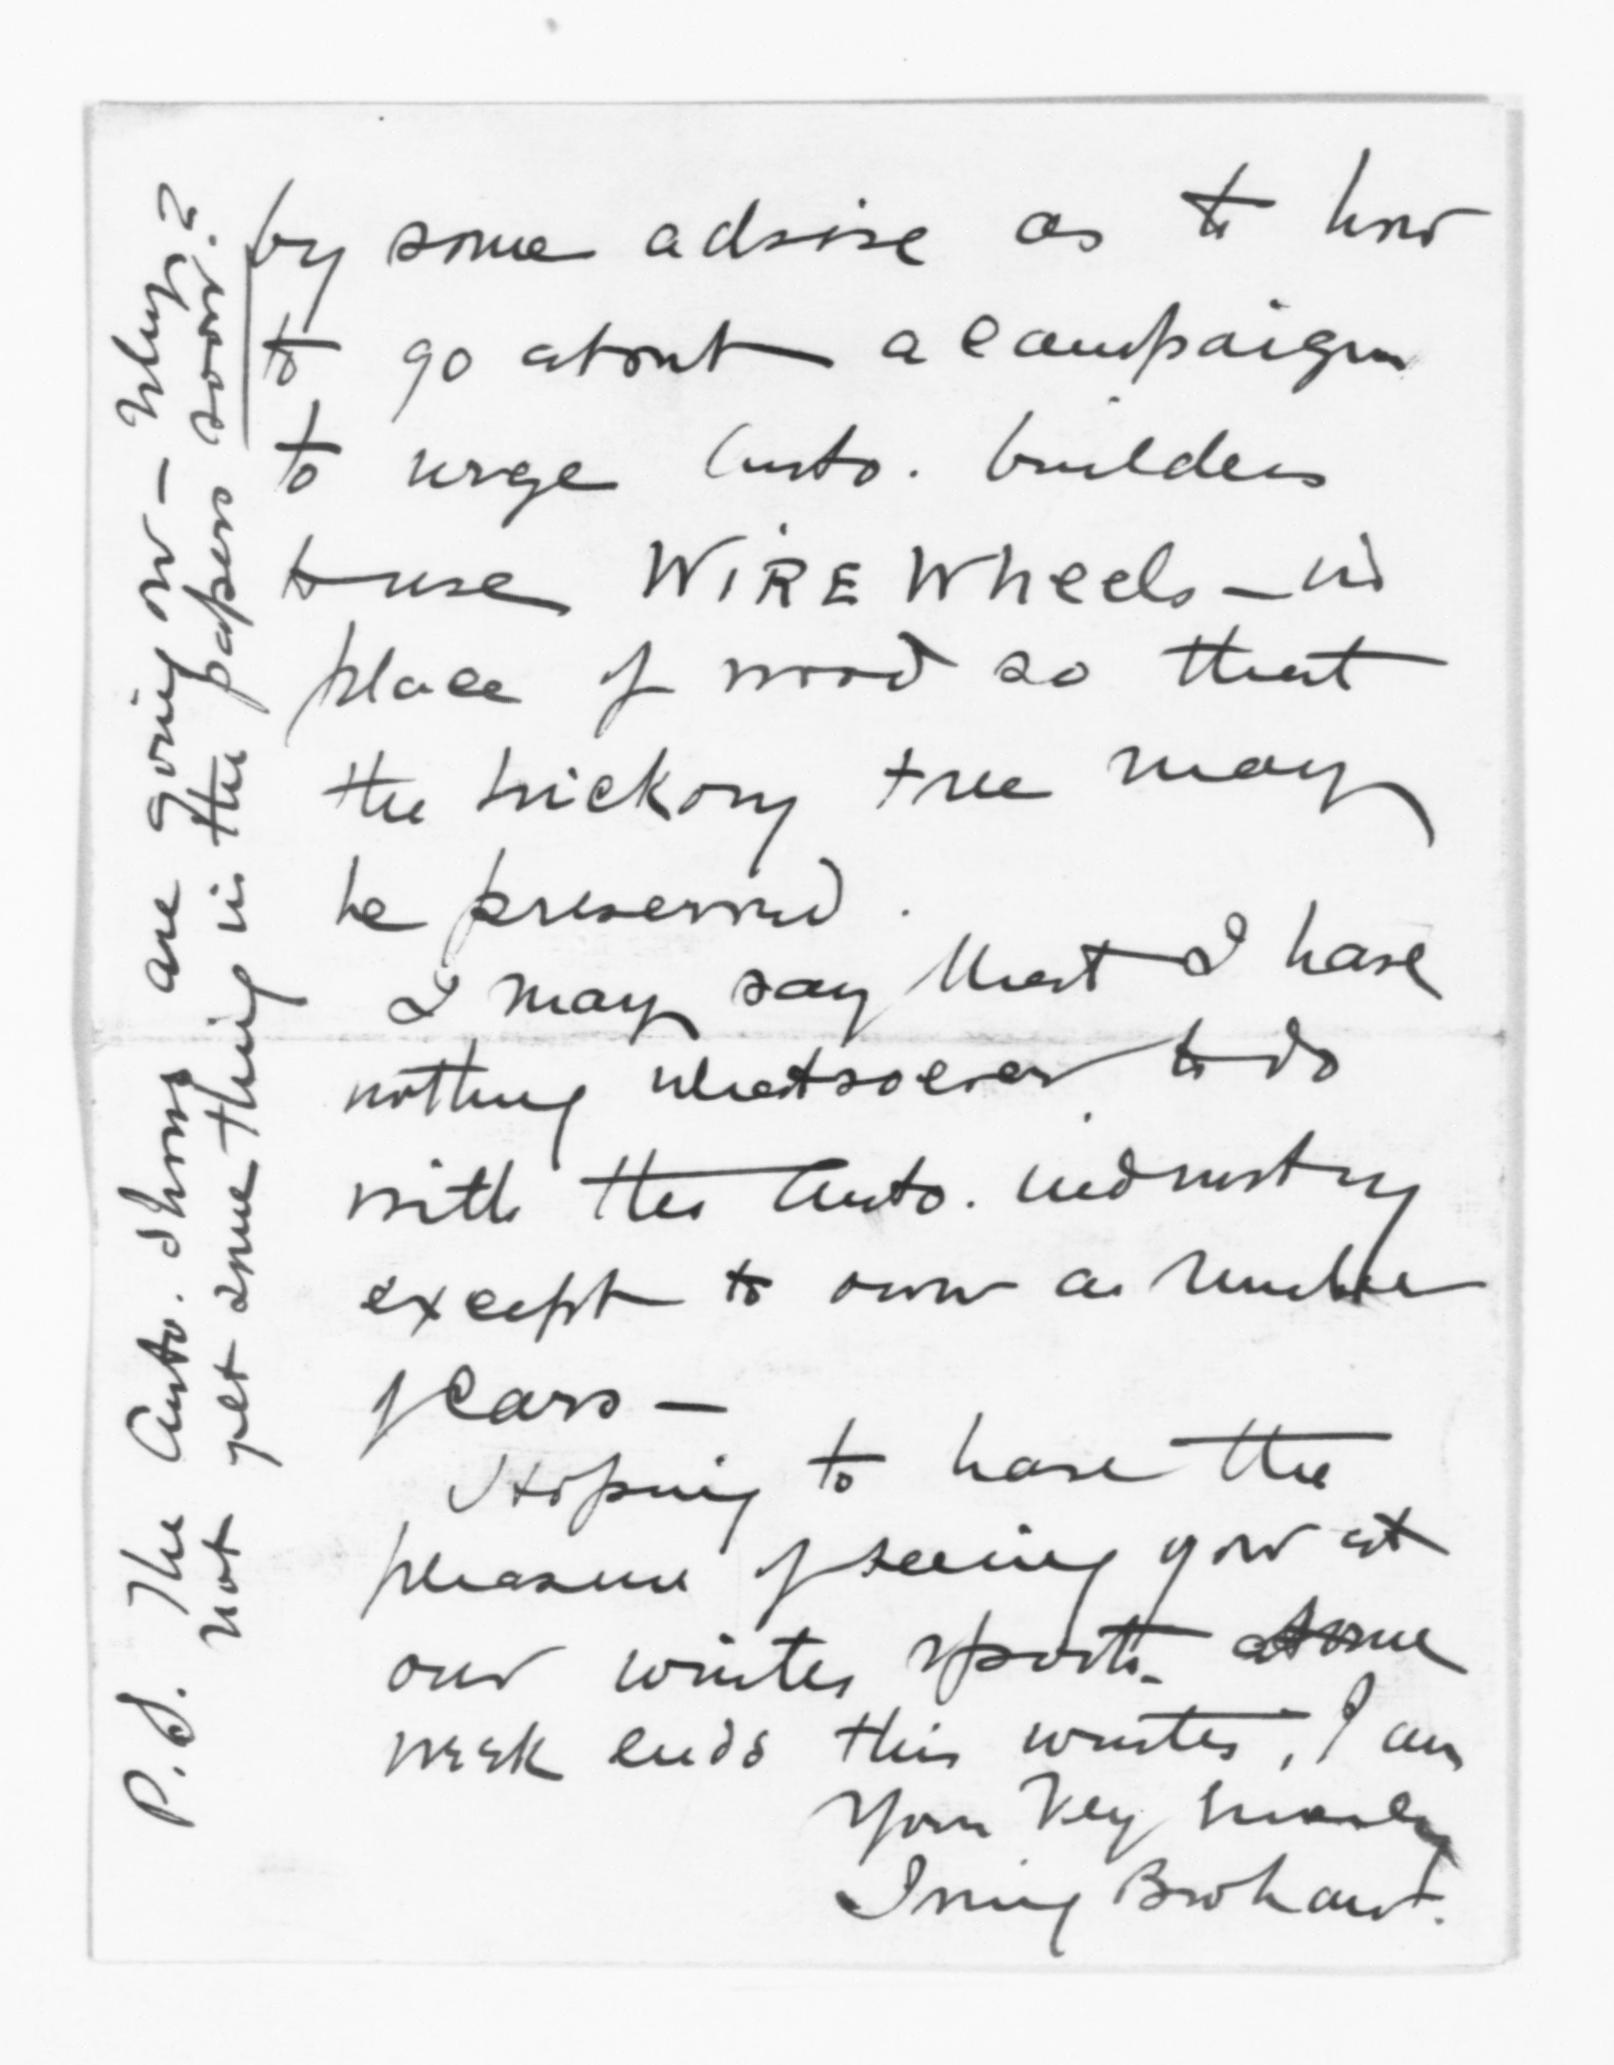 by some advise as to how
to go about a campaign
to urge Auto. builders
to use WIRE Wheels — in
place of wood so that
the hickory tree may
be preserved.
I may say that I have
nothing whatsoever to do
with the Auto. industry
except to own a number
of cars —
Hoping to have the
pleasure of seeing you at
our winter sports some
week ends this winter, I am
Yours Very Sincerely
Irving
P.S. The Auto. Shows are going on — Why?
not get some thing in the papers soon?